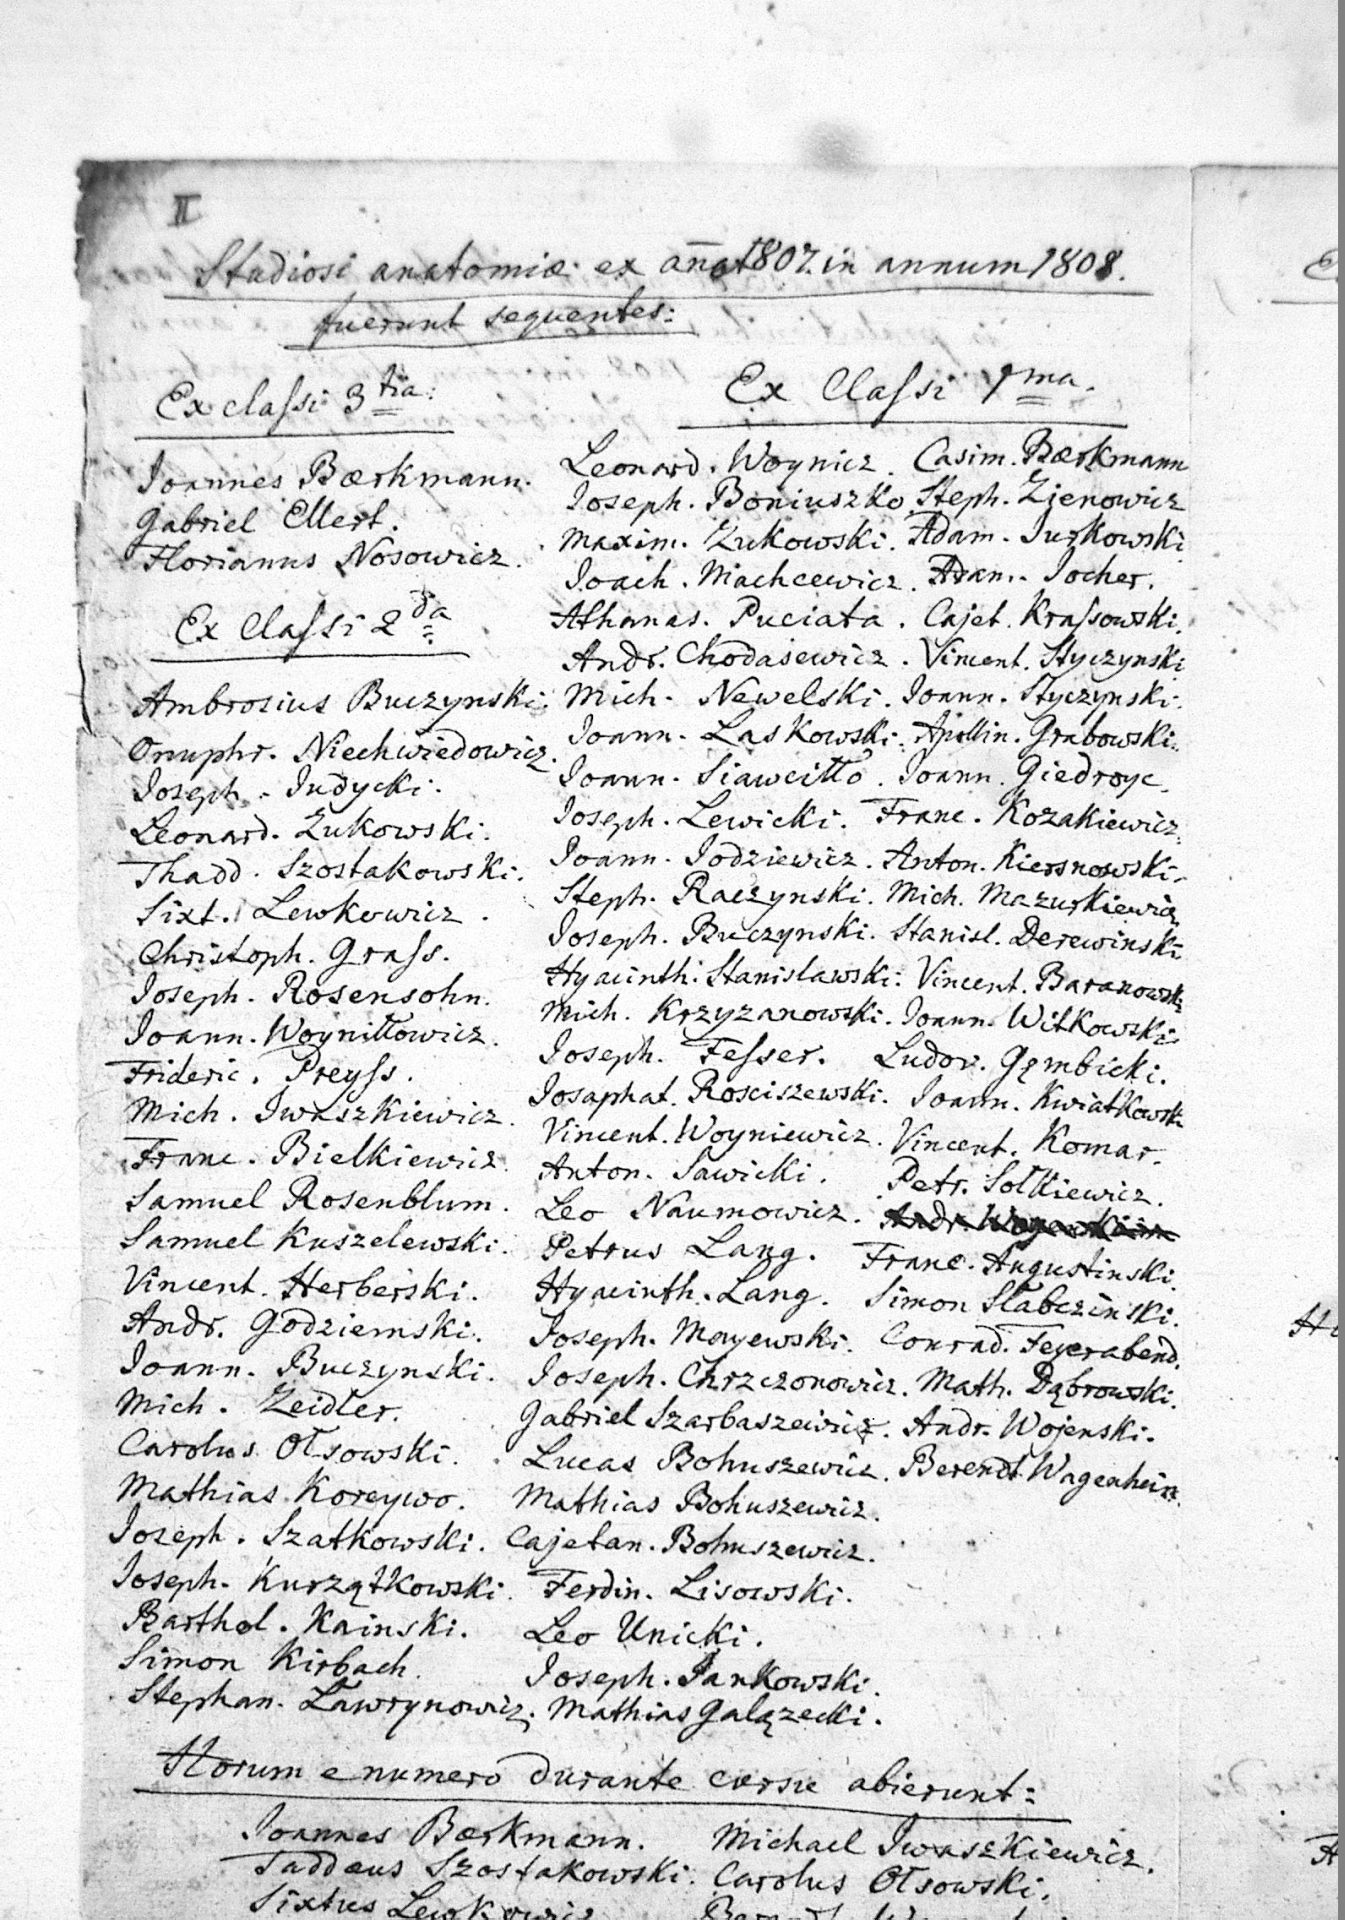 II
Studiosi anatomiæ ex anno 1807. in annum 1808.
fuerunt sequentes:
Ex classi 3tia:
Joannes Bœrkmann.
Gabriel Ellert.
Florianus Nosowicz.
Ex Classi 2da
Ambrosius Buczynski.
Onuphr. Niechwiedowicz.
Joseph. Judycki.
Leonard. Zukowski.
Thadd. Szostakowski.
Sixt. Lewkowicz.
Christoph. Grass.
Joseph. Rosensohn.
Joann. Woyniłłowicz.
Frideric. Preyss.
Mich. Iwaszkiewicz.
Franc. Bielkiewicz.
Samuel Rosenblum.
Samuel Kuszelewski.
Vincent. Herberski.
Andr. Godziemski.
Joann. Buczynski.
Mich. Zeidler.
Carolus Olsowski.
Mathias Koreywo.
Joseph. Szatkowski.
Joseph. Kurzątkowski.
Barthol. Kainski.
Simon Kirbach.
Stephan. Ławrynowicz.
Ex Classi 1ma.
Leonard. Woynicz. Casim. Bœrkmann
Joseph. Boniuszko. Steph. Zienowicz
Maxim. Zukowski. Adam. Jurkowski
Joach. Machcewicz. Adam. Jocher.
Athanas. Puciata. Cajet. Krassowski.
Andr. Chodasewicz. Vincent. Styczynski
Mich. Newelski. Joann. Styczynski.
Joann. Laskowski. Apollin. Grabowski.
Joann. Siawciłło. Joann. Giedroyc.
Joseph. Lewicki. Franc. Kozakiewicz.
Joann. Jodziewicz. Anton. Kiersnowski.
Steph. Raczynski. Mich. Mazurkiewicz
Joseph. Buczynski. Stanisl. Derewinski
Hyacinth. Stanislawski. Vincent. Baranowski
Mich. Krzyzanowski. Joann. Witkowski.
Joseph. Fesser. Ludov. Gęmbicki.
Josaphat. Rosciszewski. Joann. Kwiatkowski
Vincent. Woyniewicz. Vincent. Komar.
Anton. Sawicki. Petr. Solkiewicz.
Leo Naumowicz.
Petrus Lang. Franc. Augustinski.
Hyacinth. Lang. Simon Slabczinski.
Joseph. Mayewski. Conrad. Feyerabend.
Joseph. Chrzczonowicz. Math. Dąbrowski.
Gabriel Szarbaszewicz. Andr. Wojenski.
Lucas Bohuszewicz. Berendt Wagenheim.
Mathias Bohuszewicz.
Cajetan. Bohuszewicz.
Ferdin. Lisowski.
Leo Unicki.
Joseph. Jankowski.
Mathias Galązecki.
Horum e numero durante cursu abierunt:
Joannes Bœrkmann. Michael Iwaszkiewicz.
Taddæus Szostakowski. Carolus Olsowski.
Sixtus Lewkowicz